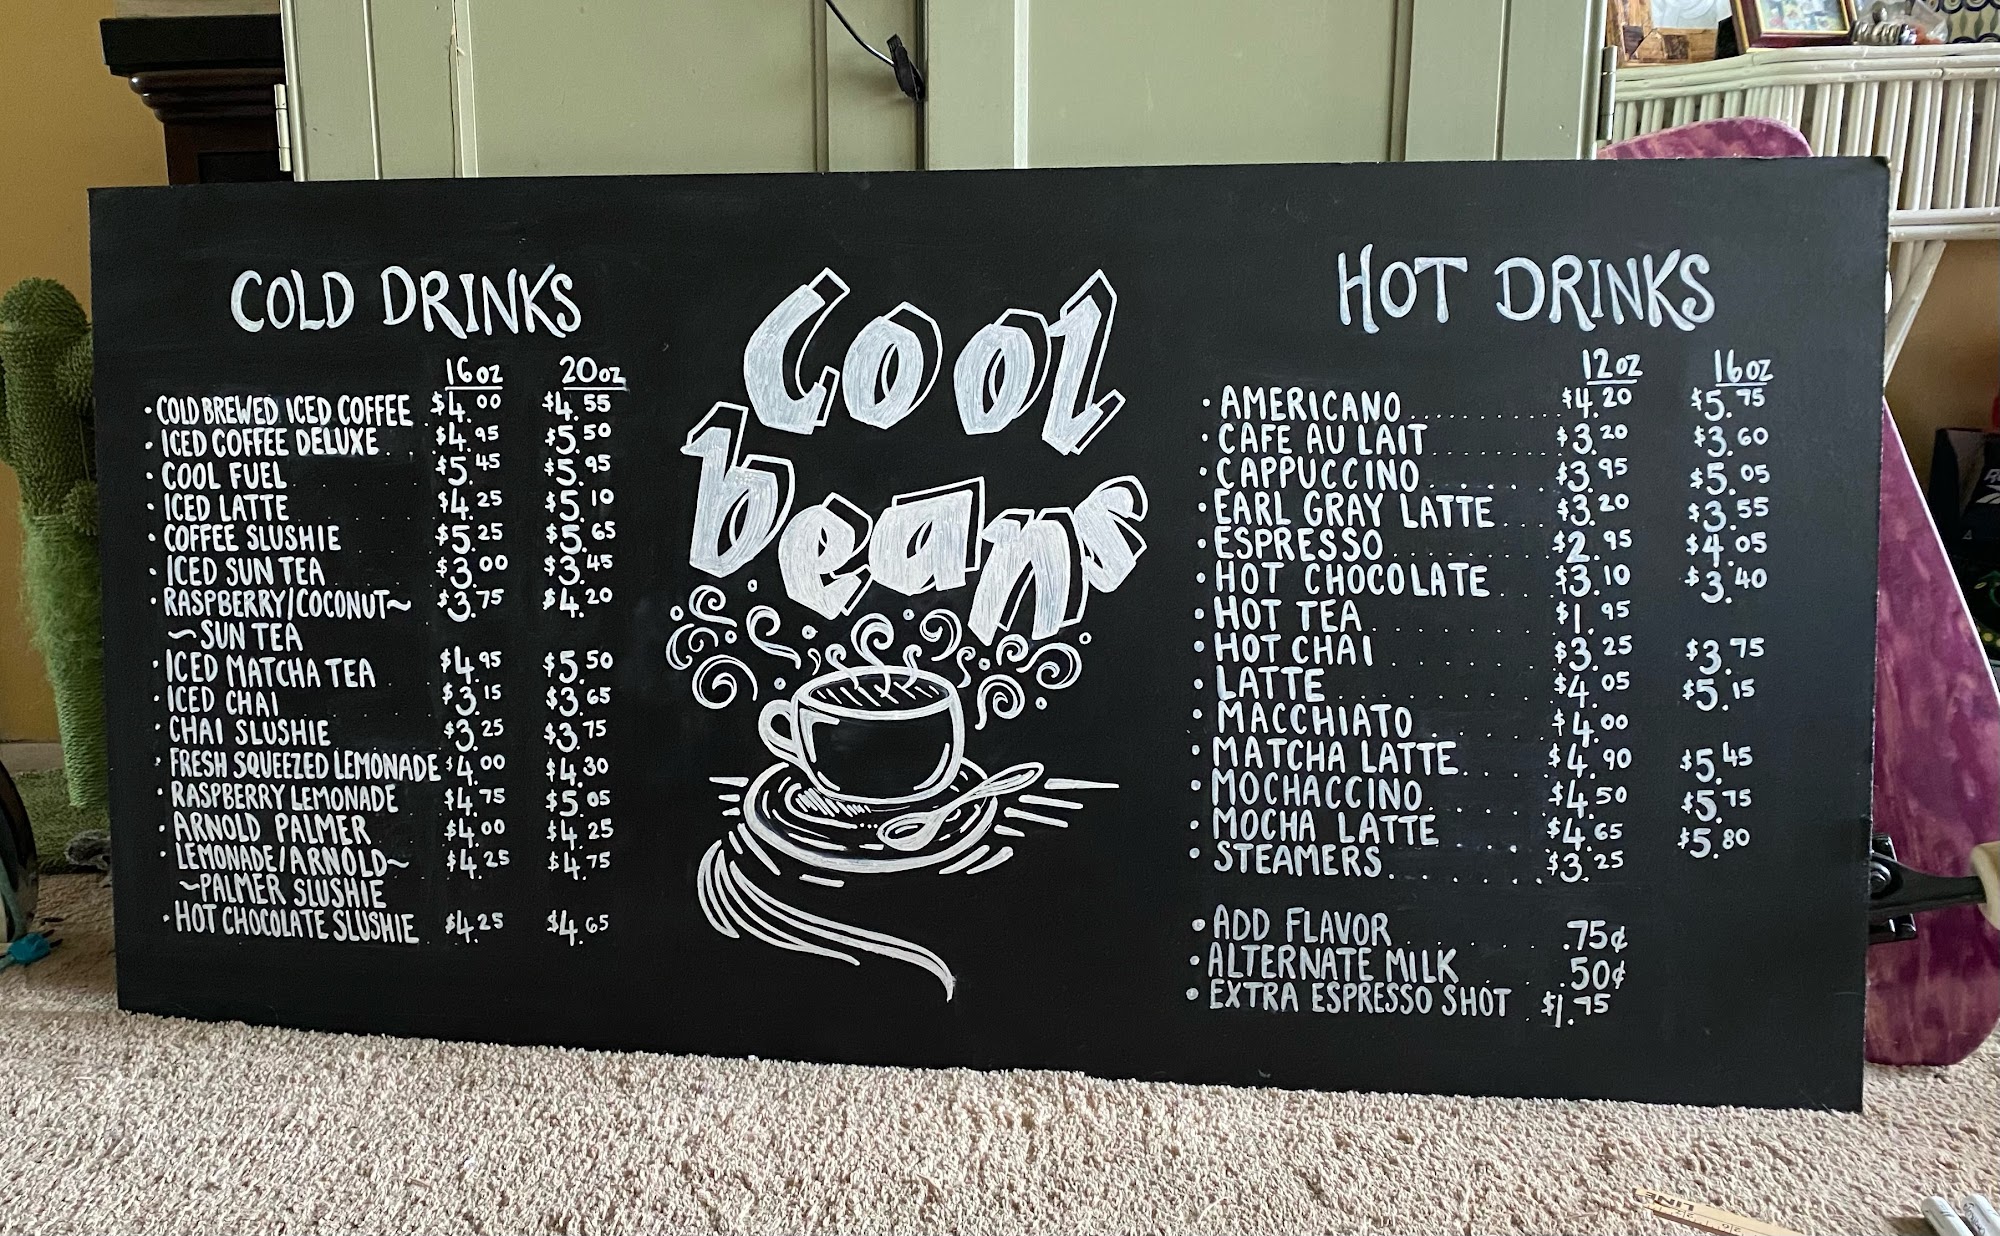 COLD DRINKS
16oz 20oz
• COLD BREWED ICED COFFEE $4.00 $4.55
• ICED COFFEE DELUXE . . $4.95 $5.50
• COOL FUEL $5.45 $5.95
• ICED LATTE $4.25 $5.10
• COFFEE SLUSHIE $5.25 $5.65
• ICED SUN TEA $3.00 $3.45
• RASPBERRY/COCONUT~ $3.75 $4.20
~SUN TEA
• ICED MATCHA TEA $4.95 $5.50
• ICED CHAI $3.15 $3.65
• CHAI SLUSHIE $3.25 $3.75
• FRESH SQUEEZED LEMONADE $4.00 $4.30
• RASPBERRY LEMONADE $4.75 $5.05
• ARNOLD PALMER $4.00 $4.25
• LEMONADE/ARNOLD~ $4.25 $4.75
~PALMER SLUSHIE
• HOT CHOCOLATE SLUSHIE $4.25 $4.65
Cool
beans
HOT DRINKS
12oz 16oz
• AMERICANO . . . . . . . $4.20 $5.75
• CAFE AU LAIT . . . . . . $3.20 $3.60
• CAPPUCCINO . . . . . . $3.95 $5.05
• EARL GRAY LATTE . . . $3.20 $3.55
• ESPRESSO . . . . . . . . $2.95 $4.05
• HOT CHOCOLATE . . . $3.10 $3.40
• HOT TEA . . . . . . . . . $1.95
• HOT CHAI . . . . . . . . $3.25 $3.75
• LATTE . . . . . . . . . . $4.05 $5.15
• MACCHIATO . . . . . . $4.00
• MATCHA LATTE . . . . $4.90 $5.45
• MOCHACCINO . . . . . $4.50 $5.75
• MOCHA LATTE . . . . . $4.65 $5.80
• STEAMERS . . . . . . . $3.25
• ADD FLAVOR . . . . . . .75¢
• ALTERNATE MILK . . . .50¢
• EXTRA ESPRESSO SHOT . $1.75